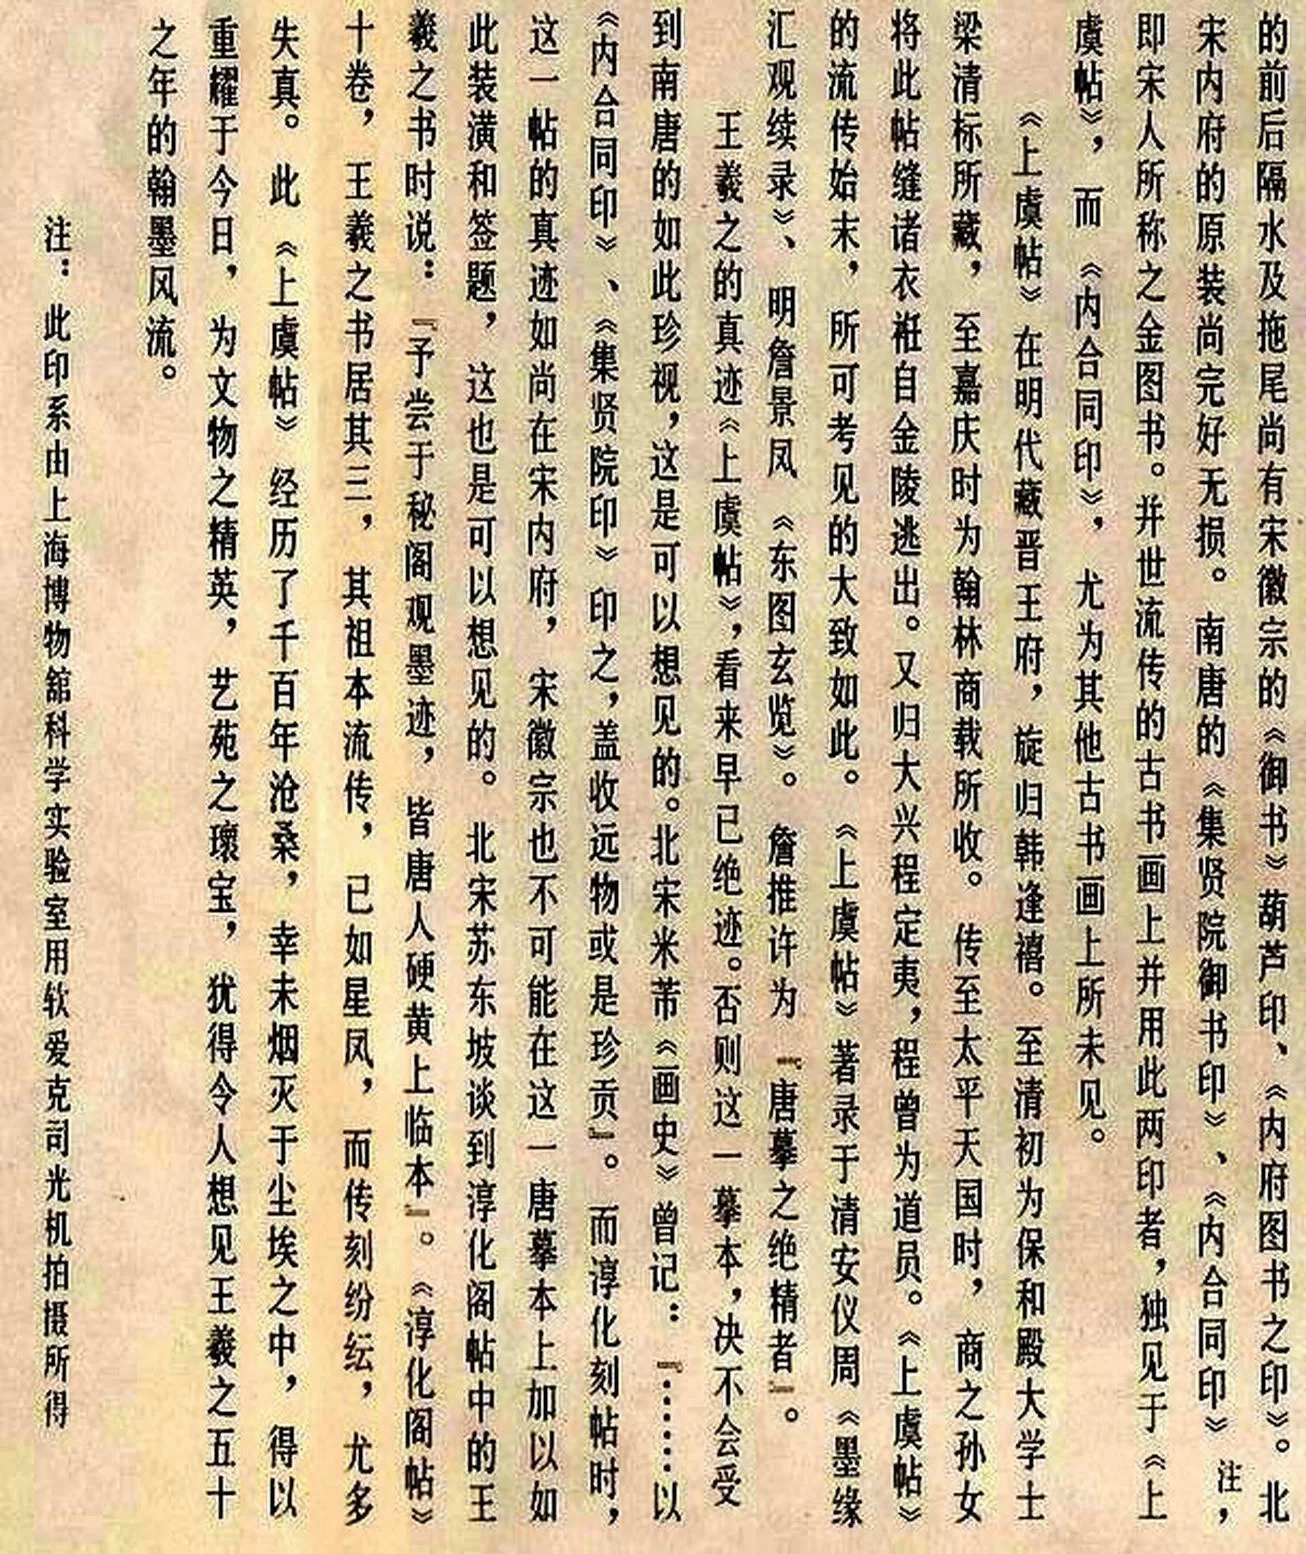 的前后隔水及拖尾尚有宋徽宗的《御书》葫芦印、《内府图书之印》。北
宋内府的原装尚完好无损。南唐的《集贤院御书印》、《内合同印》注，
即宋人所称之金图书。并世流传的古书画上并用此两印者，独见于《上
虞帖》，而《内合同印》，尤为其他古书画上所未见。
《上虞帖》在明代藏晋王府，旋归韩逢禧。至清初为保和殿大学士
梁清标所藏，至嘉庆时为翰林商载所收。传至太平天国时，商之孙女
将此帖缝诸衣袵自金陵逃出。又归大兴程定夷，程曾为道员。《上虞帖》
的流传始末，所可考见的大致如此。《上虞帖》著录于清安仪周《墨缘
汇观续录》、明詹景凤《东图玄览》。詹推许为『唐摹之绝精者』。
王羲之的真迹《上虞帖》，看来早已绝迹。否则这一摹本，决不会受
到南唐的如此珍视，这是可以想见的。北宋米芾《画史》曾记：『……以
《内合同印》、《集贤院印》印之，盖收远物或是珍贡』。而淳化刻帖时，
这一帖的真迹如尚在宋内府，宋徽宗也不可能在这一唐摹本上加以如
此装潢和签题，这也是可以想见的。北宋苏东坡谈到淳化阁帖中的王
羲之书时说：『予尝于秘阁观墨迹，皆唐人硬黄上临本』。《淳化阁帖》
十卷，王羲之书居其三，其祖本流传，已如星凤，而传刻纷纭，尤多
失真。此《上虞帖》经历了千百年沧桑，幸未烟灭于尘埃之中，得以
重耀于今日，为文物之精英，艺苑之瓌宝，犹得令人想见王羲之五十
之年的翰墨风流。
注：此印系由上海博物舘科学实验室用软爱克司光机拍摄所得